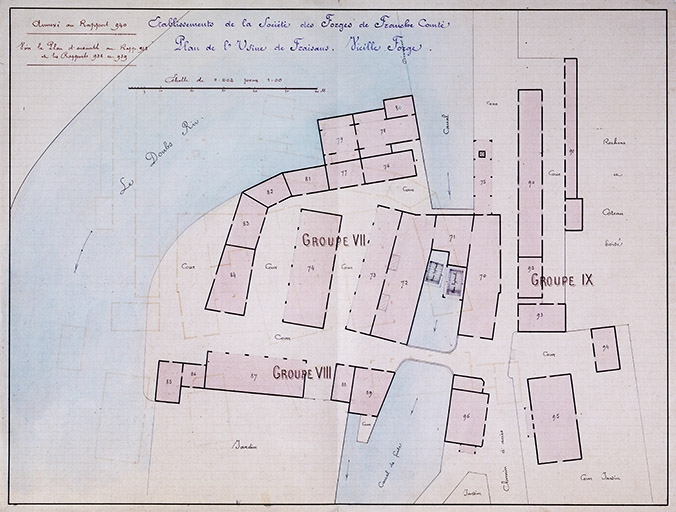 Annexé au Rapport 940
Etablissements de la Société des Forges de Franche Comté
Voir le Plan d'ensemble au Rapp.
et les Rapports 938 et 939
Plan de l'Usine de Fraisans. Vieille Forge.
Echelle de 0.002 pour 1.00
Le Doubs Riv.
Canal
Cour
80
79
78
77
76
Cour
81
82
83
84
75
Cour
90
91
Rochers
et
Côteau
boisé
GROUPE VII
Cour
Cour
74
Cour
73
72
71
70
92
GROUPE IX
93
94
Cour
Cour
85
86
87
GROUPE VIII
88
89
Cour
96
95
Jardin
Canal de fuite
Jardin
Chemin
Cour Jardin